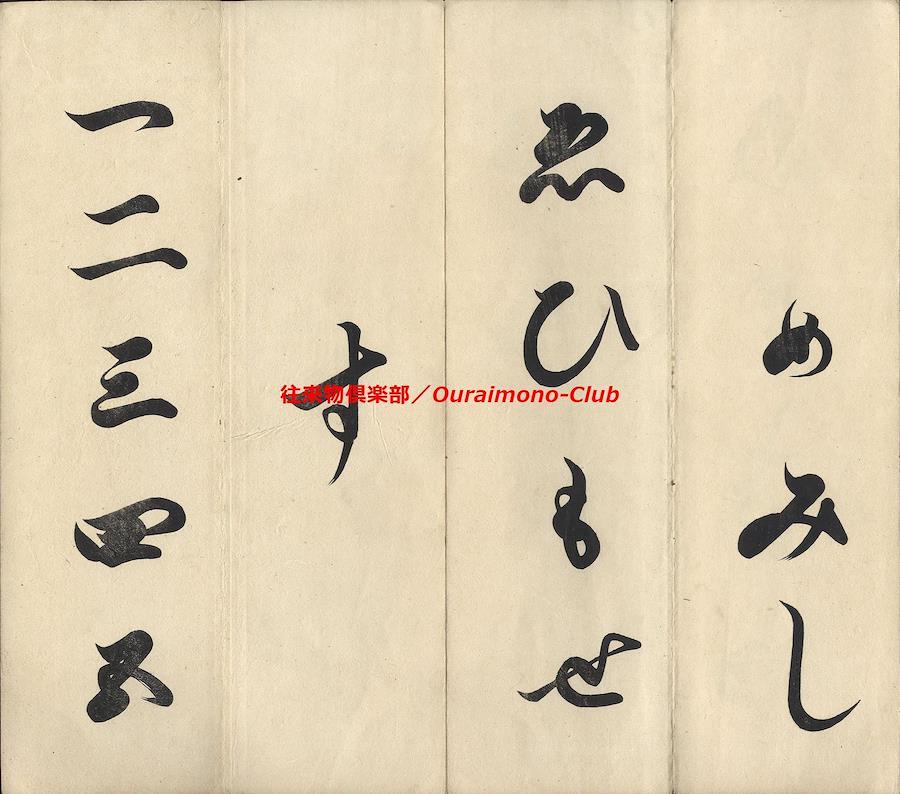 めみし
ゑひもせ
す
一二三四五
往来物倶楽部／Ouraimono-Club